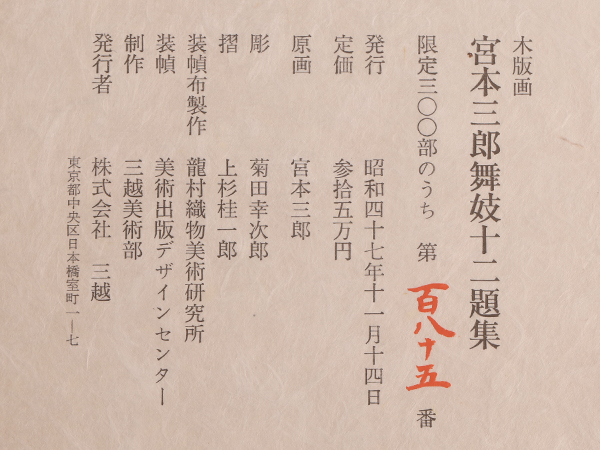 木版画
宮本三郎舞妓十二題集
限定三〇〇部のうち 第 百八十五 番
発行 昭和四十七年十一月十四日
定価 参拾五万円
原画 宮本三郎
彫 菊田幸次郎
摺 上杉桂一郎
装幀布製作 龍村織物美術研究所
装幀 美術出版デザインセンター
制作 三越美術部
発行者 株式会社 三越
東京都中央区日本橋室町一―七